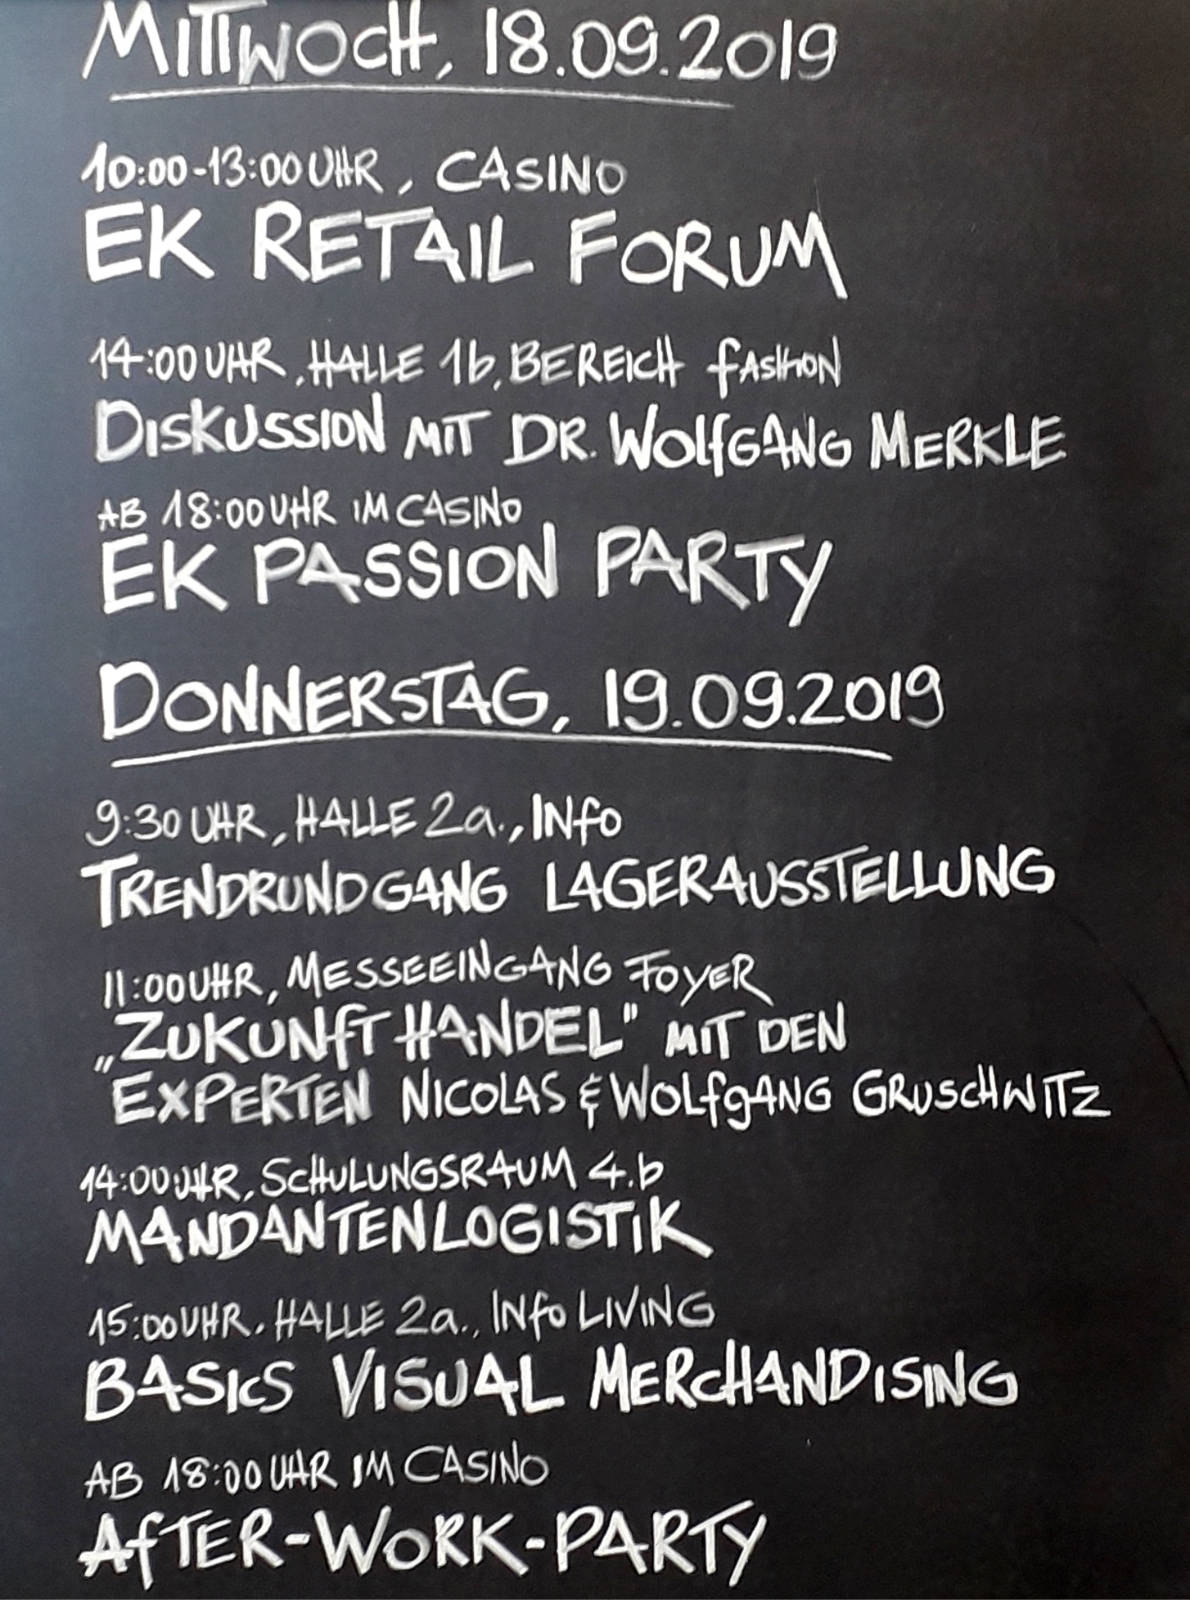 MITTWOCH, 18.09.2019
10:00-13:00 UHR, CASINO
EK RETAIL FORUM
14:00 UHR, HALLE 1b, BEREICH fASHION
DISKUSSION MIT DR. WOlfGANG MERKLE
AB 18:00 UHR IM CASINO
EK PASSION PARTY
DONNERSTAG, 19.09.2019
9:30 UHR, HALLE 2a., INfo
TRENDRUNDGANG LAGERAUSSTELLUNG
11:00 UHR, MESSEEINGANG FOYER
„ZUKUNfT HANDEL" MIT DEN
EXPERTEN NICOLAS & WOLfgANG GRUSCHWITZ
14:00 UHR, SCHULUNGSRAUM 4.b
MANDANTENLOGISTIK
15:00 UHR, HALLE 2a., INfo LIVING
BASICS VISUAL MERCHANDISING
AB 18:00 UHR IM CASINO
AfTER-WORK-PARTY